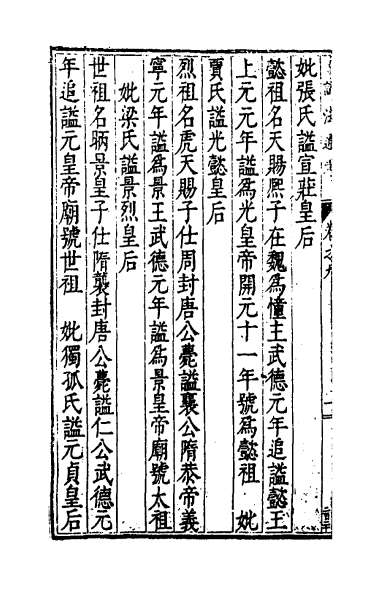 妣張氏謚宣莊皇后
懿祖名天賜熈子在魏爲憧主武德元年追謚懿王
上元元年謚爲光皇帝開元十一年號爲懿祖　妣
賈氏謚光懿皇后
烈祖名虎天賜子仕周封唐公薨謚襄公隋恭帝義
寧元年謚爲景王武德元年謚爲景皇帝廟號太祖
妣梁氏謚景烈皇后
世祖名昞景皇子仕隋襲封唐公薨謚仁公武德元
年追謚元皇帝廟號世祖　妣獨孤氏謚元貞皇后